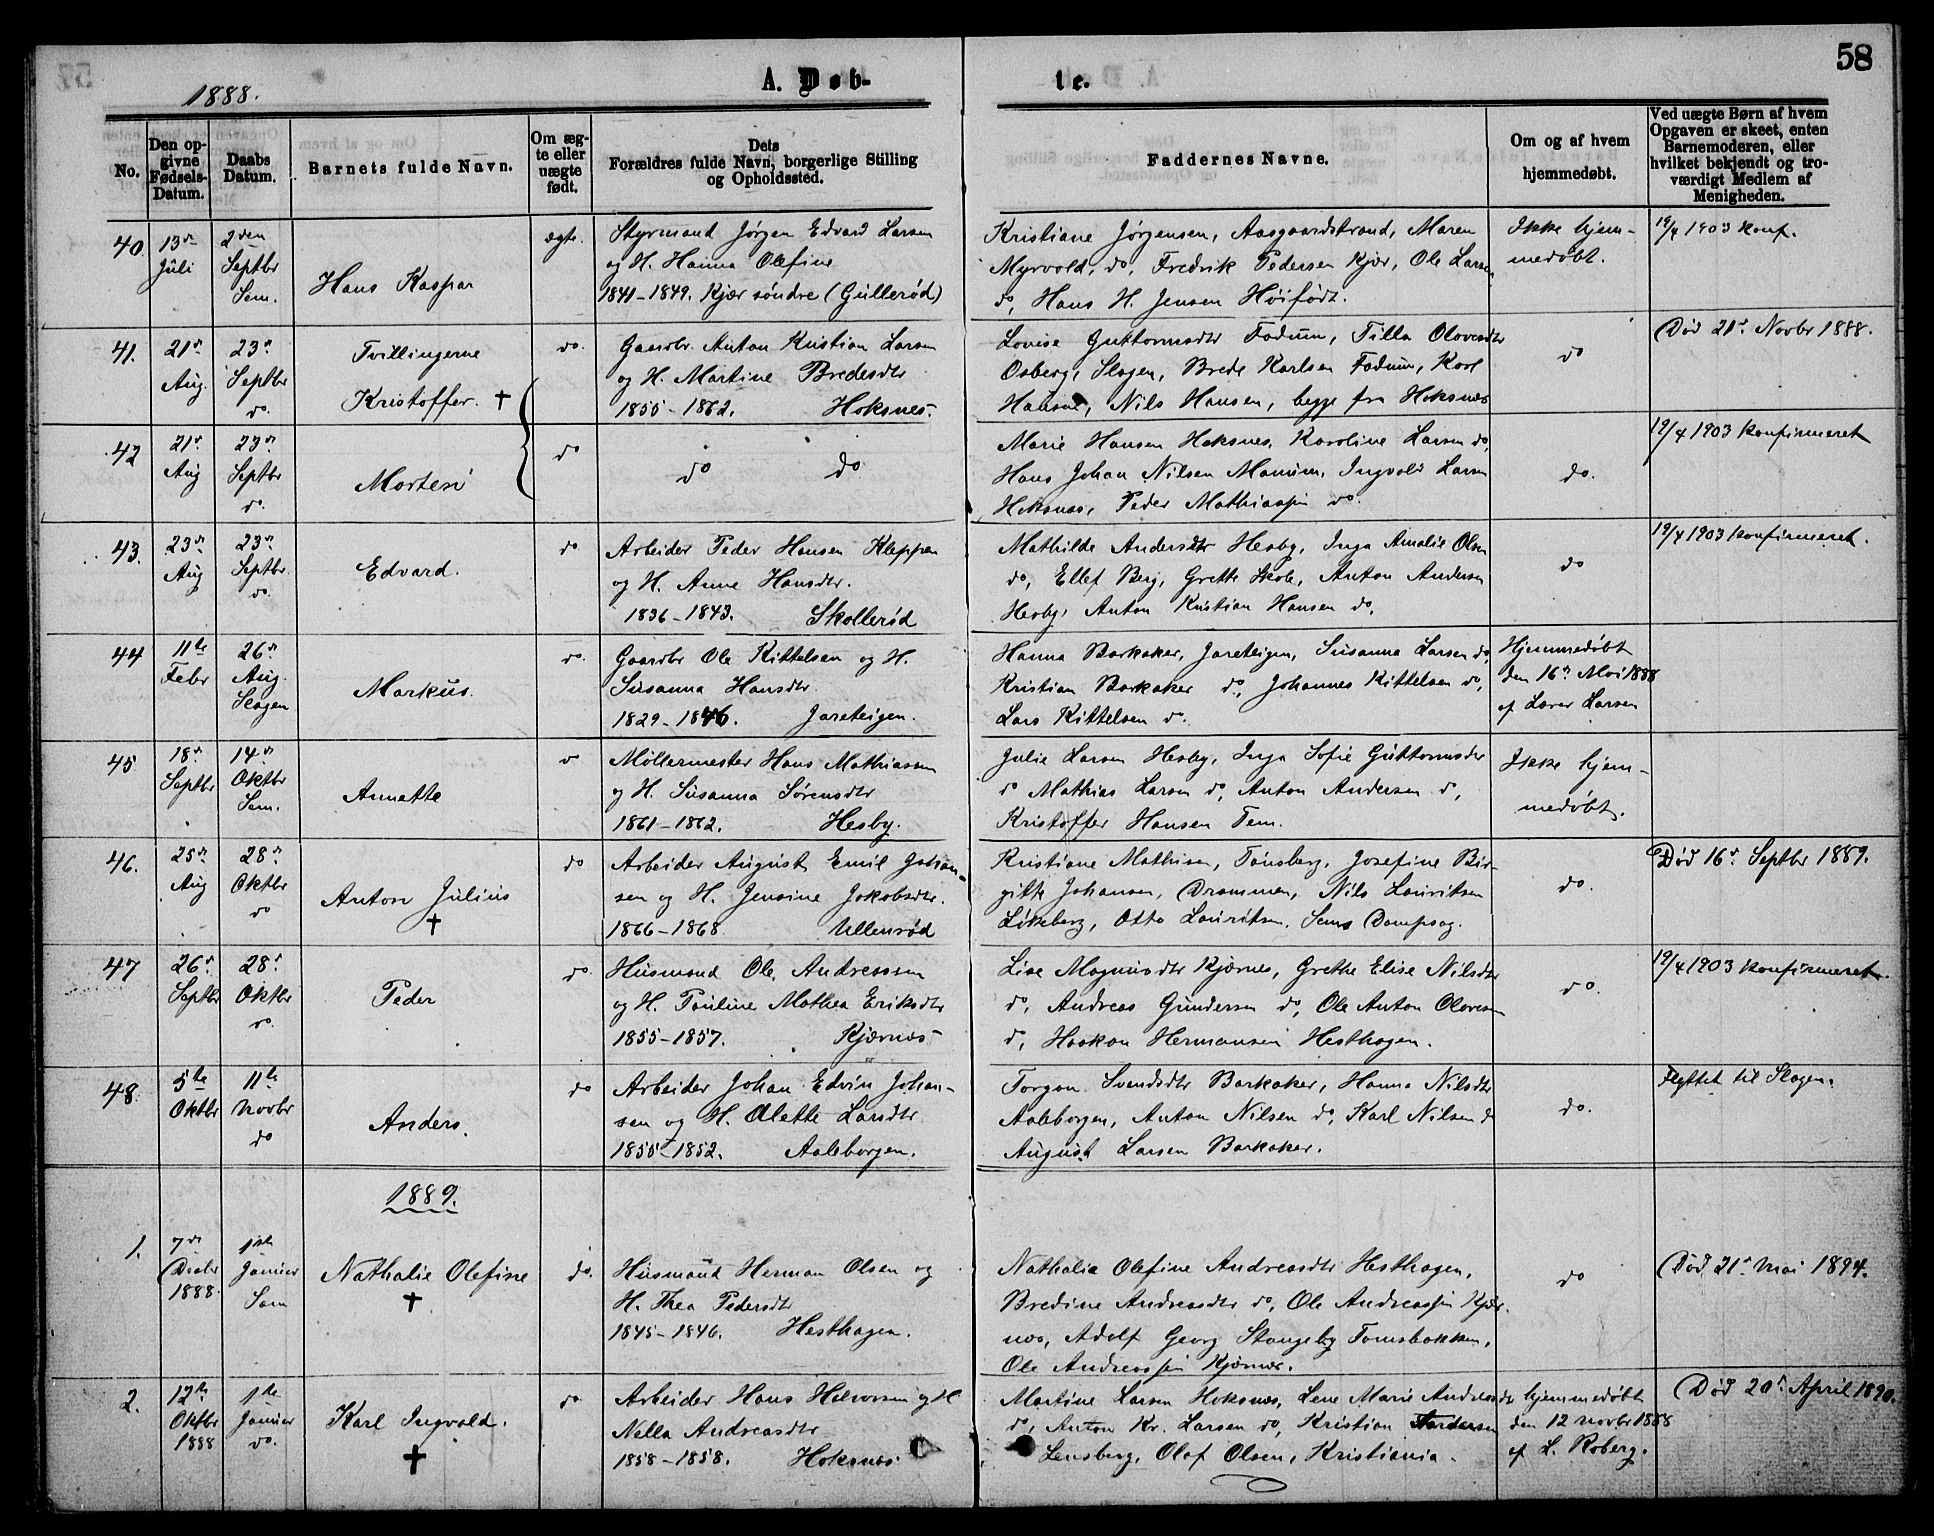 58
1888.
A. Døb-
te.
No.
Den op-
givne
Fødsels-
Datum.
Daabs
Datum.
Barnets fulde Navn.
Om æg-
te eller
uægte
født.
Dets
Forældres fulde Navn, borgerlige Stilling
og Opholdssted.
Faddernes Navne.
Om og af hvem
hjemmedøbt.
Ved uægte Børn af hvem
Opgaven er skeet, enten
Barnemoderen, eller
hvilket bekjendt og tro-
værdigt Medlem af
Menigheden.
40.
13de
Juli
2den
Septbr
Sem.
Hans Kaspar
ægte.
Styrmand Jørgen Edvard Larsen
og H. Hanna Olefine
1841-1849. Kjær søndre (Gullerød)
Kristiane Jørgensen, Aasgaardstrand, Maren
Myrvold, do, Fredrik Pedersen Kjær, Ole Larsen
do, Hans H. Jensen Höifödt.
Ikke hjem-
medøbt.
19/4 1903 Konf.
41.
21de
Aug.
23de
Septbr
do.
Tvillingerne
Kristoffer. †
do.
Gaardbr. Anton Kristian Larsen
og H. Martine Bredesdtr
1855-1862. Hoksnes.
Lovise Guttormsdtr Fodum, Tilla Olovesdtr
Osberg, Slagen, Brede Karlsen Fodum, Karl
Hansen, Nils Hansen, begge fra Hoksnæs
do
Død 21de Novbr 1888.
42
21de
Aug
23de
Septbr
do.
Morten
do
do do.
Marie Hansen Hoksnes, Karoline Larsen do,
Hans Johan Nilsen Manum, Ingvald Larsen
Hoksnæs, Peder Mathiassen do.
do.
19/4 1903 Konfirmeret
43.
23de
Aug
23de
Septbr.
do.
Edvard.
do
Arbeider Peder Hansen Kleppan
og H. Anne Hansdtr.
1836-1843. Skollerød
Mathilde Andersdtr Hesby, Inga Amalie Olsen
do, Ellef Berg, Grethe Skole, Anton Andersen
Hesby, Anton Kristian Hansen do.
do
19/4 1903 Konfirmeret.
44
11te
Febr
26de
Aug.
Slagen
Markus.
do.
Gaardbr Ole Kittelsen og H.
Susanna Hansdtr.
1829-1846. Jareteigen.
Hanna Barkaker, Jareteigen, Susanna Larsen do,
Kristian Barkaker do, Johannes Kittelsen do,
Lars Kittelsen do.
Hjemmedøbt
den 16de Mai 1888
af Lærer Larsen
45
18de
Septbr
14de
Oktbr
Sem.
Annette
do
Møllermester Hans Mathiassen
og H. Susanna Sørensdtr
1861-1862. Hesby.
Julie Larsen Hesby, Inga Sofie Guttormsdtr
do Mathias Larsen do, Anton Andersen do,
Kristoffer Hansen Tem.
Ikke hjem-
medøbt.
46.
25de
Aug
28de
Oktbr
do
Anton Julius
†
do
Arbeider August Emil Johan-
sen og H. Jensine Jakobsdtr.
1866-1868. Ullenrød
Kristiane Mathisen, Tønsberg, Josefine Bir-
gitte Johansen, Drammen, Nils Lauritsen
Løkeberg, Otto Lauritsen, Sems Dampsag.
do.
Død 16de Septbr 1889.
47
26de
Septbr
28de
Oktbr
do.
Peder
do.
Husmand Ole Andreassen
og H. Pauline Mathea Eriksdtr
1855-1857. Kjærnæs
Lise Magnusdtr Kjærnes, Grethe Elise Nilsdtr
do, Andreas Gundersen do, Ole Anton Olavesen
do, Haakon Hermansen Hesthagen.
do.
19/4 1903 Konfirmeret.
48.
5te
Oktbr
11te
Novbr
do
Anders.
do
Arbeider Johan Edvin Johan-
sen og H. Olette Larsdtr
1855-1852. Aaleborgen.
Torgon Svendsdtr Barkaker, Hanna Nilsdtr
Aaleborgen, Anton Nilsen do, Karl Nilsen do
August Larsen Barkaker.
do.
Flyttet til Slagen.
1889.
1.
7de
Decbr
1888.
1ste
Januar
Sem
Nathalie Olefine
†
do.
Husmand Herman Olsen og
H. Thea Pedersdtr
1845-1846. Hesthagen.
Nathalia Olefine Andreasdtr Hesthagen,
Bredine Andreasdtr do, Ole Andreassen Kjær-
næs, Adolf Georg Stangeby Tomsbakken,
Ole Andreassen Kjærnæs.
do
Død 21de Mai 1894.
2.
12te
Oktbr
1888
1ste
Januar
do.
Karl Ingvald.
†
do
Arbeider Hans Halvorsen og H
Nella Andreasdtr
1858-1858. Hoksnæs
Martine Larsen Hoksnæs, Lene Marie Andreasdtr
do, Anton Kr. Larsen do, Kristian
Lensberg, Olaf Olsen, Kristiania.
hjemmedøbt
den 12 Novbr 1888
af L. Roberg.
Død 20de April 1890.